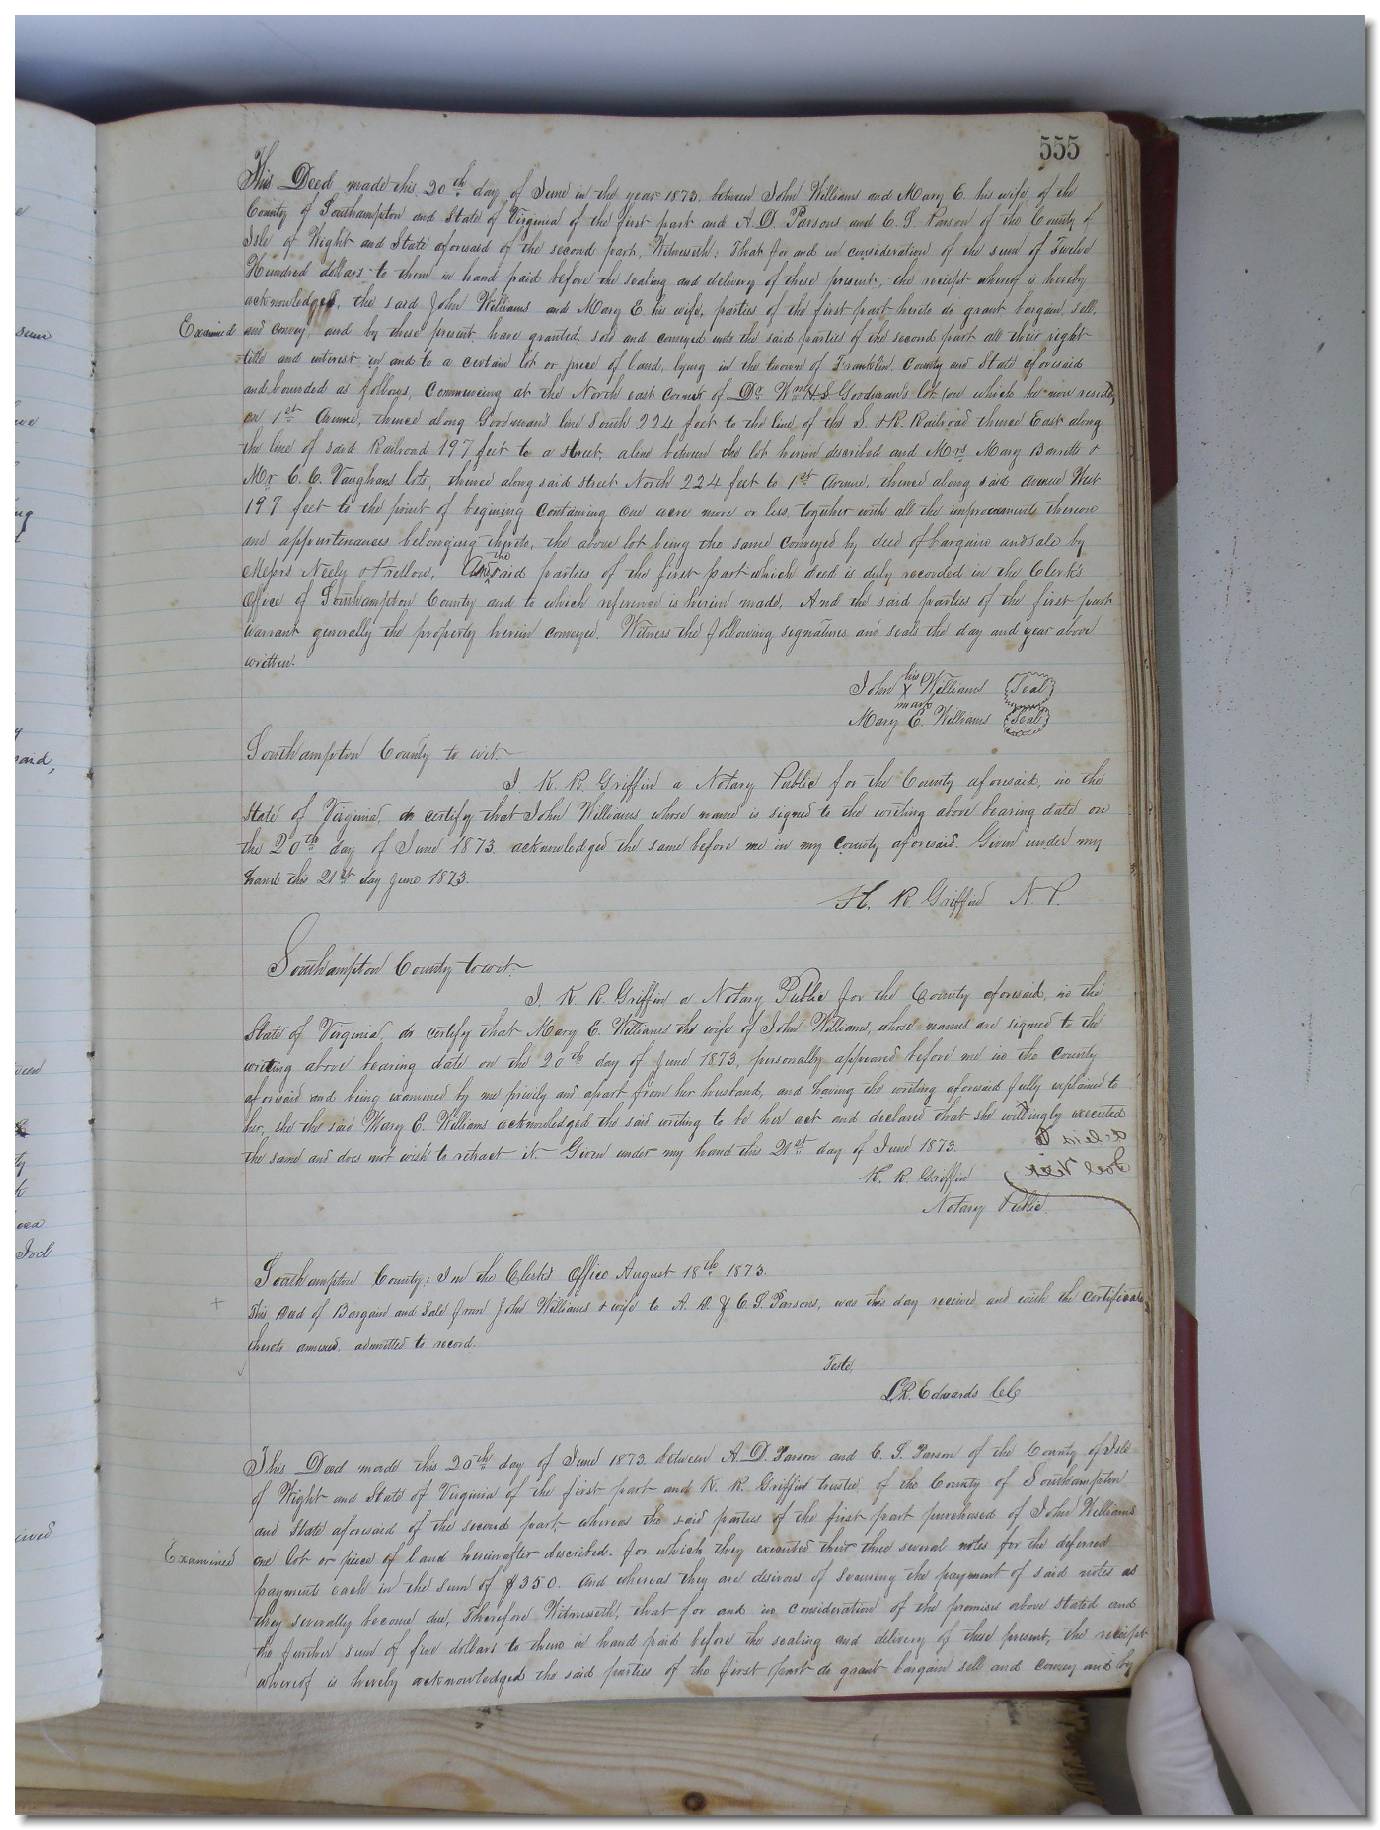 555
This Deed made this 20th day of June in the year 1873 between John Williams and Mary E. his wife, of the
County of Southampton and State of Virginia of the first part and A. D. Parsons and E. S. Parson of the County of
Isle of Wight and State aforesaid of the second part, Witnesseth: That for and in consideration of the sum of Twelve
Hundred dollars to them in hand paid before the sealing and delivery of these present, the receipt whereof is hereby
acknowledged, the said John Williams and Mary E. his wife, parties of the first part hereto do grant bargain, sell,
Examined
and convey, and by these present, have granted, sold and conveyed unto the said parties of the second part all their right
title and interest in and to a certain lot or piece of land, lying in the town of Franklin, County and State aforesaid
and bounded as follows, Commencing at the North east corner of Dr Wm H. S. Goodman's lot (on which he now resides,
on 1st Avenue, thence along Goodman's line South 224 feet to the line of the S. & R. Railroad thence East along
the line of said Railroad 197 feet to a street, a line between the lot herein described and Mrs Mary Barretts &
Mr C. C. Vaughans lots, thence along said street North 224 feet to 1st Avenue, thence along said avenue West
197 feet to the point of begining Containing one acre more or less, together with all the improvements thereon
and appurtenances belonging thereto, the above lot being the same conveyed by deed of bargain and sale by
Messrs Neely & Trellow, And the said parties of the first part which deed is duly recorded in the Clerk's
Office of Southampton County and to which reference is herein made. And the said parties of the first part
warrant generally the property herein conveyed. Witness the following signatures and seals the day and year above
written.
his
John X Williams Seal
mark
Mary E. Williams Seal
Southampton County to wit.
I K. R. Griffin a Notary Public for the County aforesaid, in the
State of Virginia, do certify that John Williams whose name is signed to the writing above bearing date on
the 20th day of June 1873. acknowledged the same before me in my County aforesaid. Given under my
hand this 21st day June 1873.
K. R. Griffin N. P.
Southampton County to wit.
I. K. R. Griffin a Notary Public for the County aforesaid, in the
State of Virginia, do certify that Mary E. Williams the wife of John Williams, whose names are signed to the
writing above bearing date on the 20th day of June 1873, personally appeared before me in the County
aforesaid and being examined by me privily and apart from her husband, and having the writing aforesaid fully explained to
her, she the said Mary E. Williams acknowledged the said writing to be her act and declared that she willingly executed
the same and does not wish to retract it. Given under my hand this 21st day of June 1873.
K. R. Griffin
Notary Public
Southampton County: In the Clerk's Office August 18th 1873.
This deed of Bargain and Sale from John Williams & wife to A. D. & E. S. Parsons, was this day received and with the certificate
thereto annexed, admitted to record.
Teste,
L. R. Edwards C.C.
This Deed made this 20th day of June 1873 between A. D. Parson and E. S. Parson of the County of Isle
of Wight and State of Virginia of the first part and K. R. Griffin trustee, of the County of Southampton
and State aforesaid of the second part, whereas the said parties of the first part purchased of John Williams
Examined
one lot or piece of land hereinafter described, for which they executed their three several notes for the deferred
payments each in the sum of $350. And whereas they are desirous of securing the payment of said notes as
they severally become due, Therefore Witnesseth, that for and in consideration of the premises above stated and
the further sum of five dollars to them in hand paid before the sealing and delivery of these present, the receipt
whereof is hereby acknowledged the said parties of the first part do grant bargain sell and convey and by